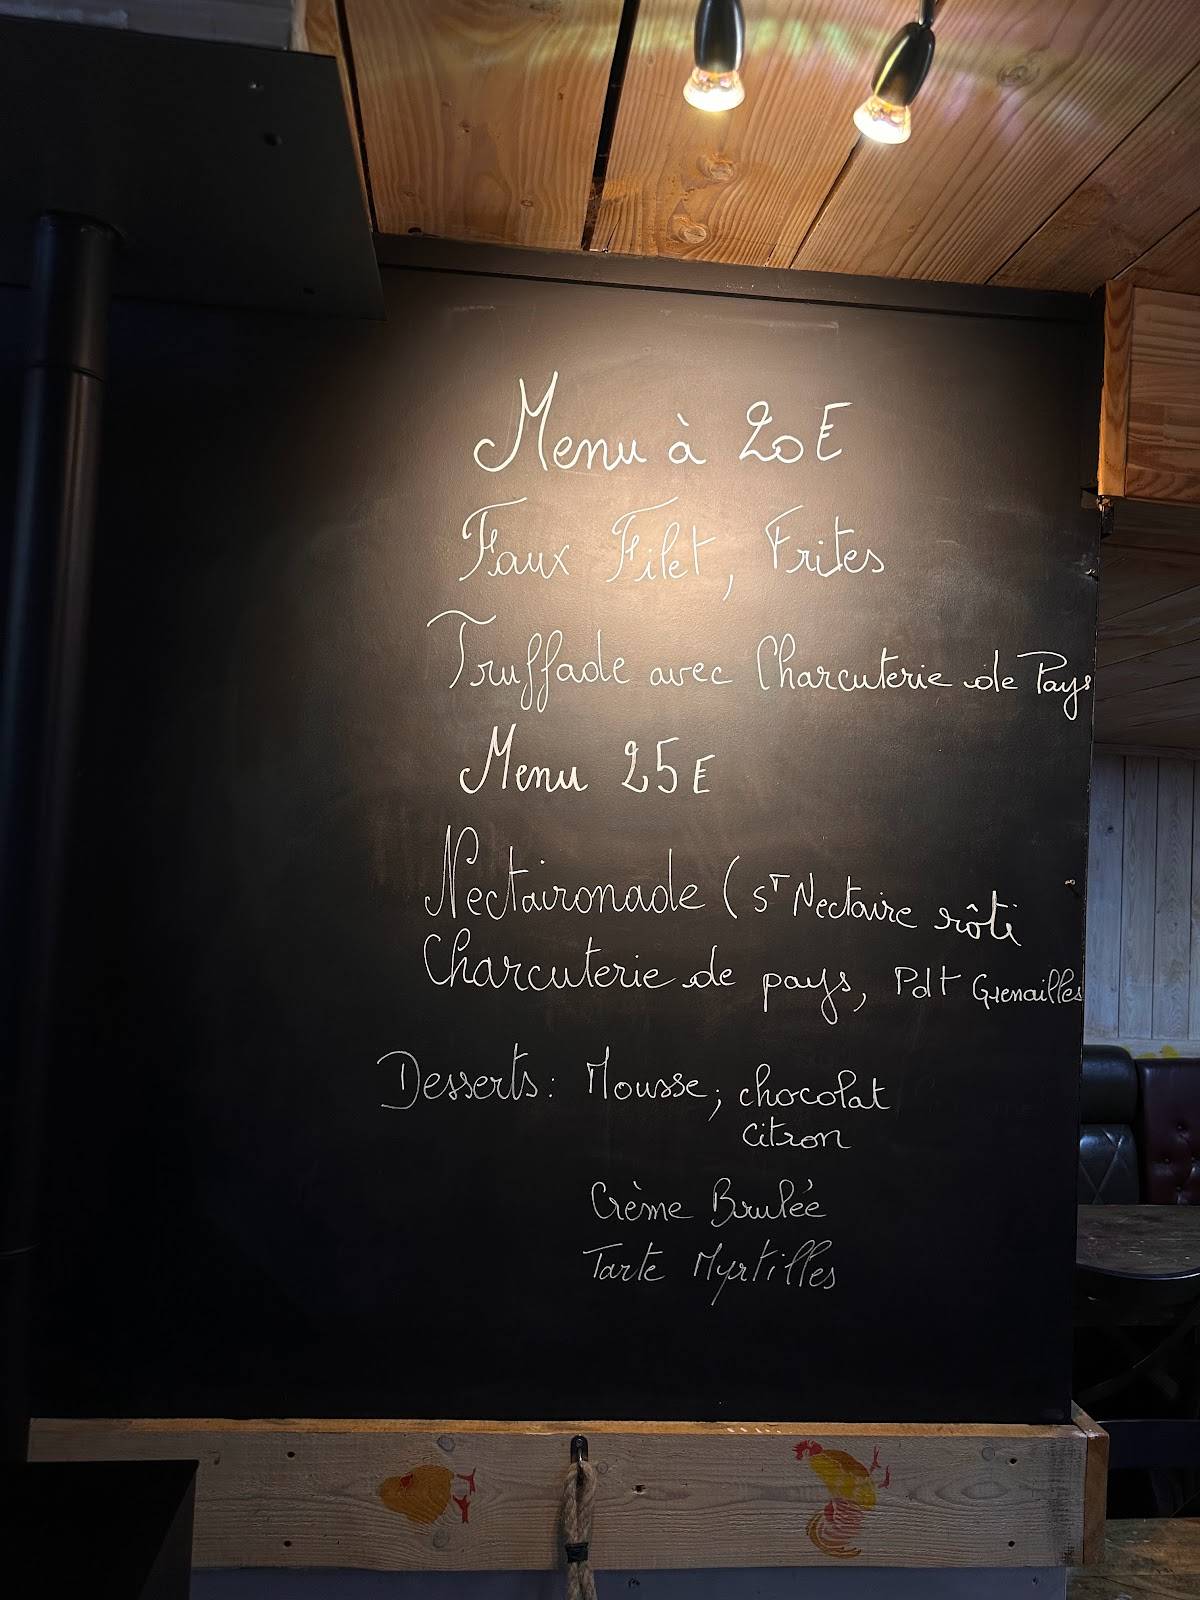 Menu à 20E
Faux Filet, Frites
Truffade avec Charcuterie de Pays
Menu 25E
Nectaironade (ST Nectaire rôti
Charcuterie de pays, Pdt Grenailles
Desserts: Mousse; chocolat
citron
Crème Brulée
Tarte Myrtilles